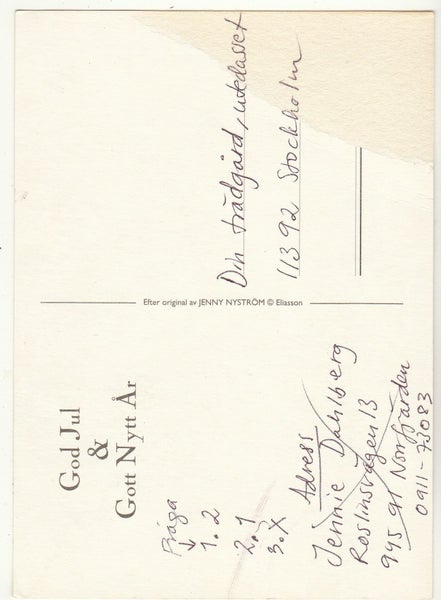 God Jul
&
Gott Nytt År
Fråga
↓
1. 2
2. 1
3. X
Adress
Jennie Dahlberg
Roslinsvägen 13
945 91 Norrfjärden
0911-73083
Efter original av JENNY NYSTRÖM © Eliasson
Din trädgård, utedasset
113 92 Stockholm